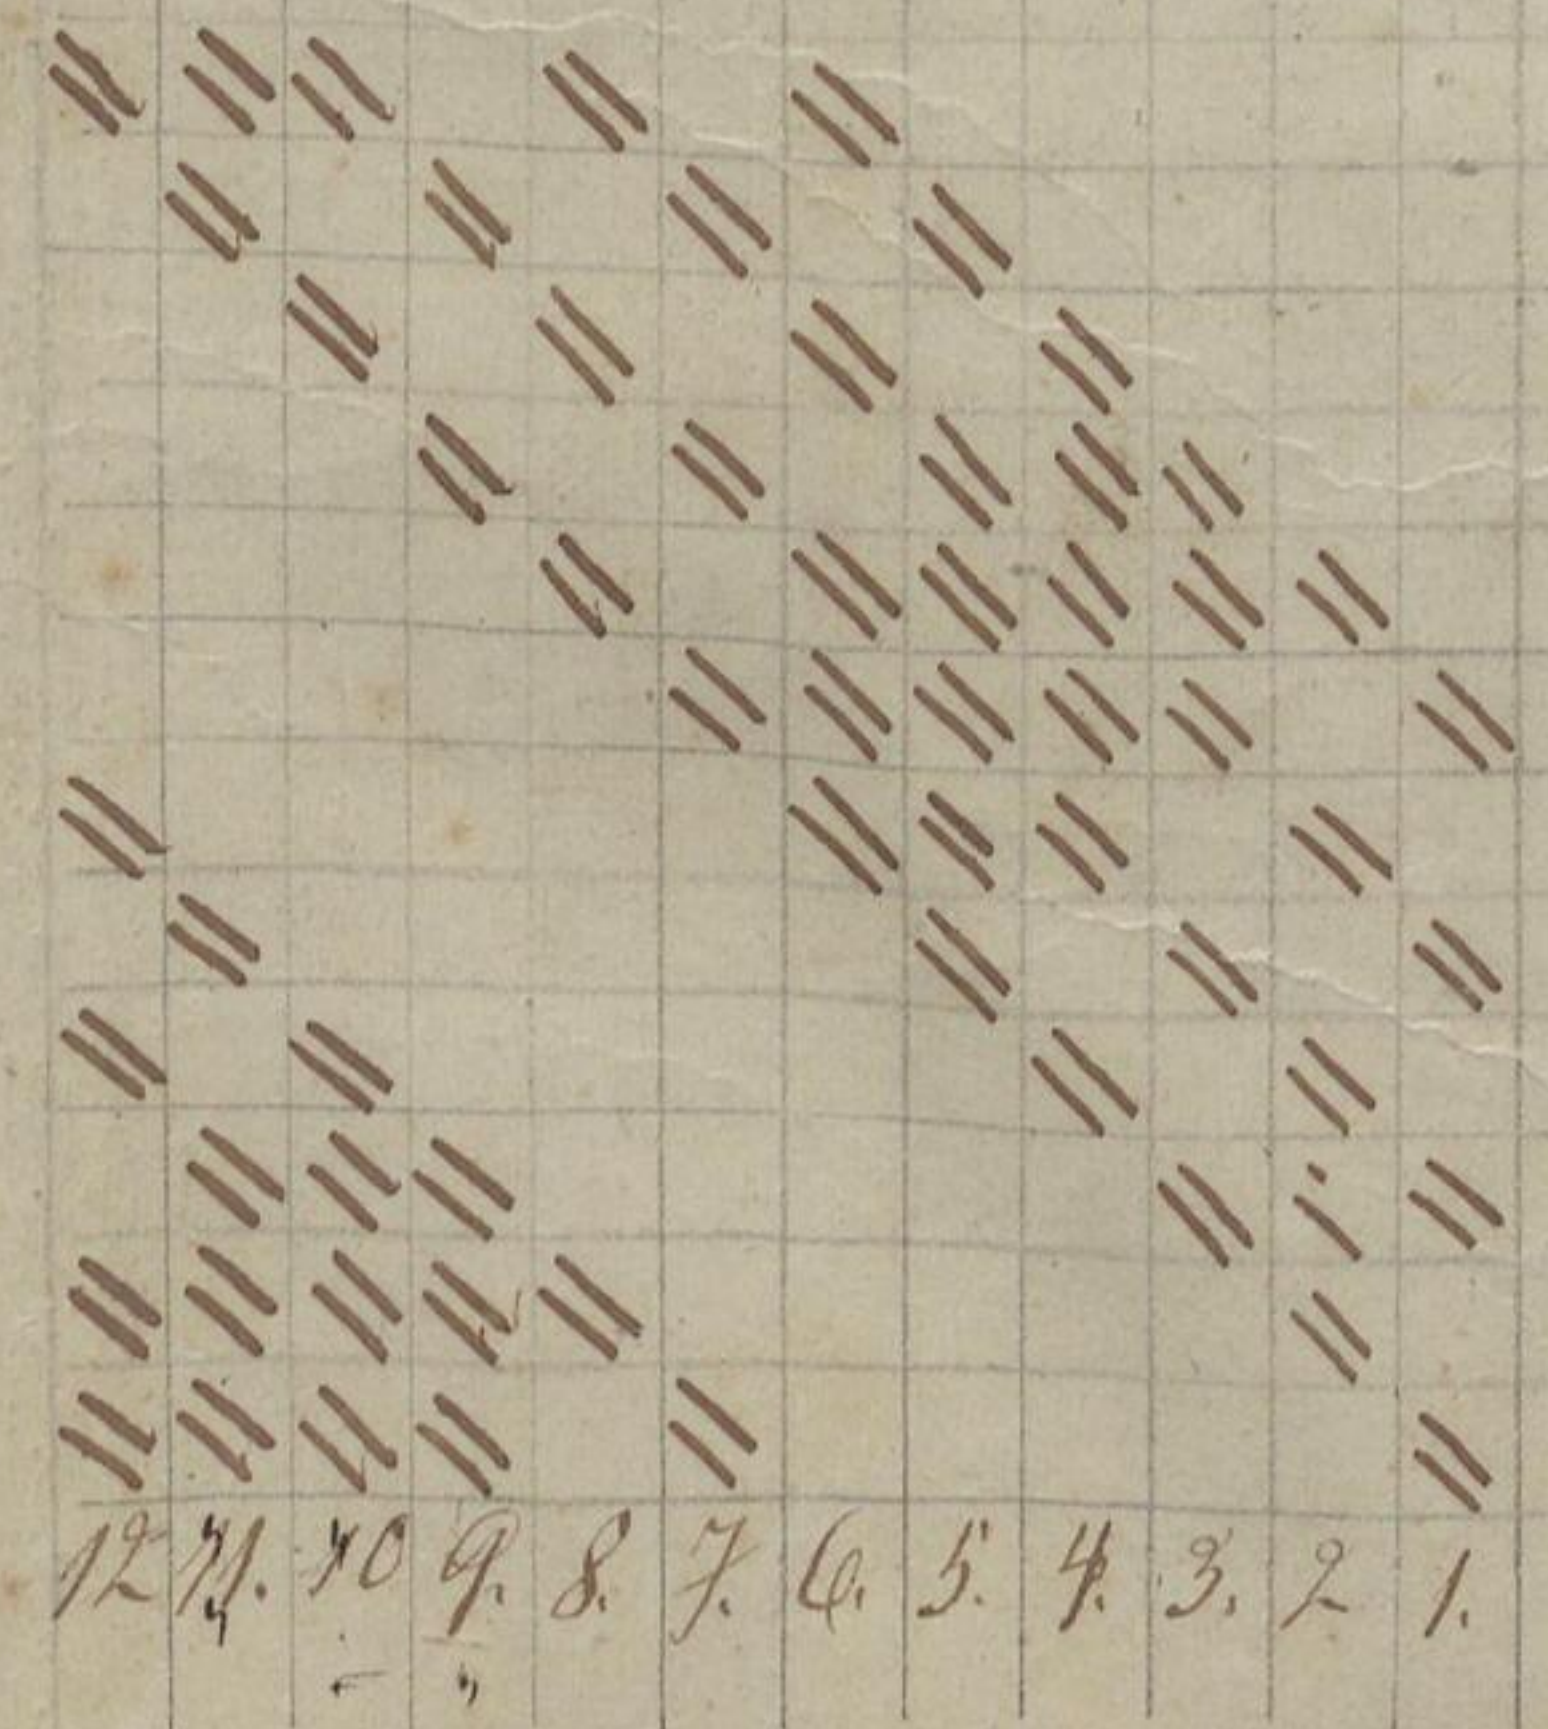 12 11. 10 9. 8. 7. 6. 5. 4. 3. 2 1.